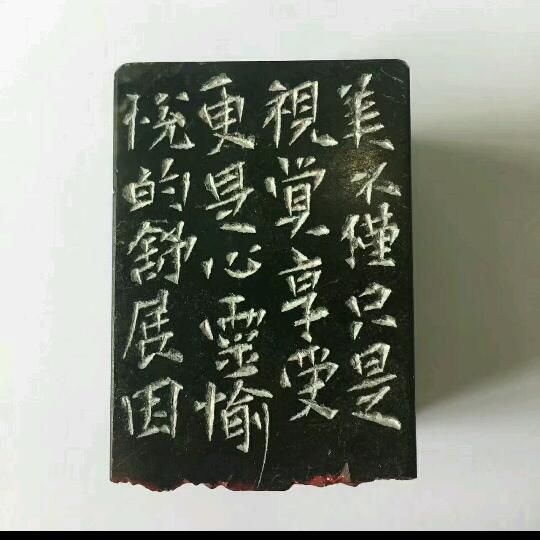 美不僅只是
視覺享受
更是心靈愉
悅的舒展因